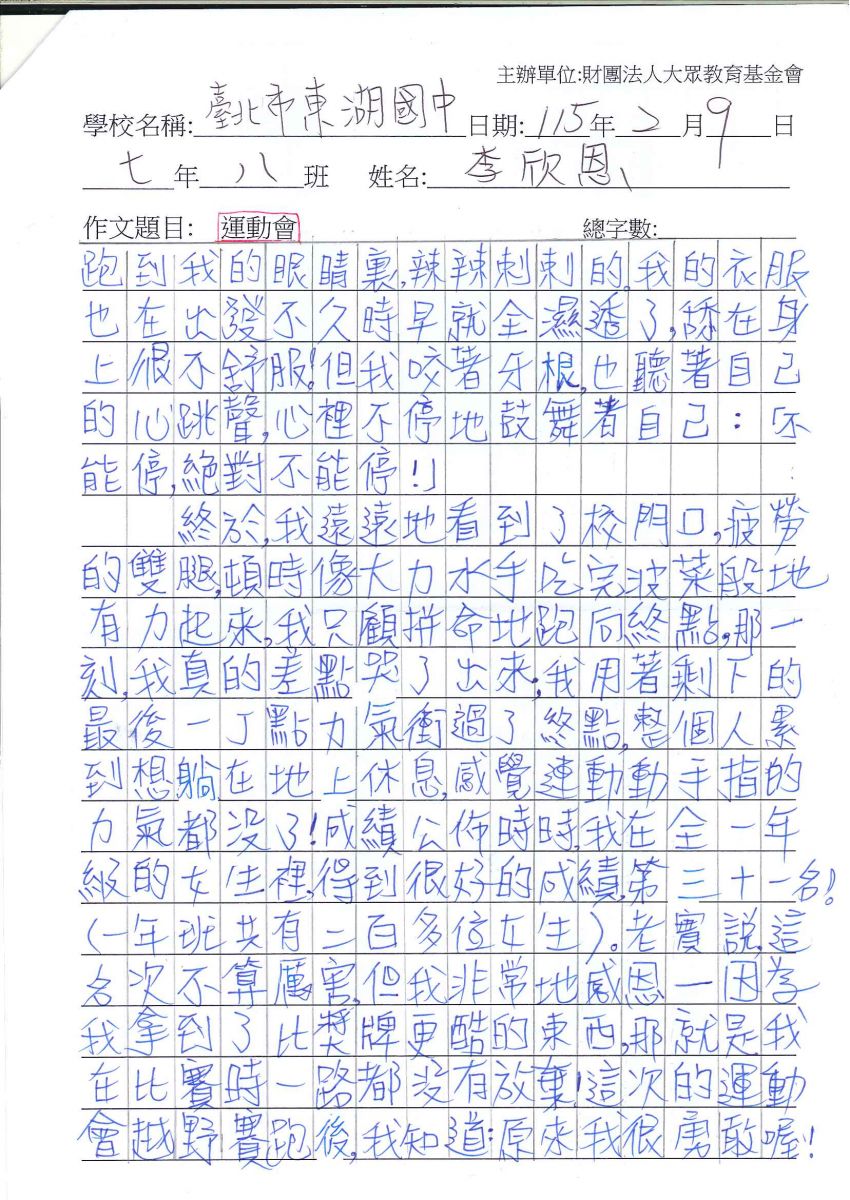 主辦單位:財團法人大眾教育基金會
學校名稱:臺北市東湖國中日期:115年2月9日
七年八班 姓名:李欣恩
作文題目: 運動會 總字數:
跑到我的眼睛裏,辣辣刺刺的。我的衣服
也在出發不久時早就全濕透了,舔在身
上很不舒服!但我咬著牙根,也聽著自己
的心跳聲,心裡不停地鼓舞著自己:「不
能停,絕對不能停!」
終於,我遠遠地看到了校門口,疲勞
的雙腿,頓時像大力水手吃完波菜般地
有力起來,我只顧拼命地跑向終點,那一
刻,我真的差點哭了出來,我用著剩下的
最後一丁點力氣衝過了終點,整個人累
到想躺在地上休息,感覺連動動手指的
力氣都沒了!成績公佈時時,我在全一年
級的女生裡,得到很好的成績,第三十一名!
(一年班共有二百多位女生)。老實說,這
名次不算厲害,但我非常地感恩—因為
我拿到了比獎牌更酷的東西,那就是我
在比賽時一路都沒有放棄!這次的運動
會越野賽跑後,我知道:原來我很勇敢喔!